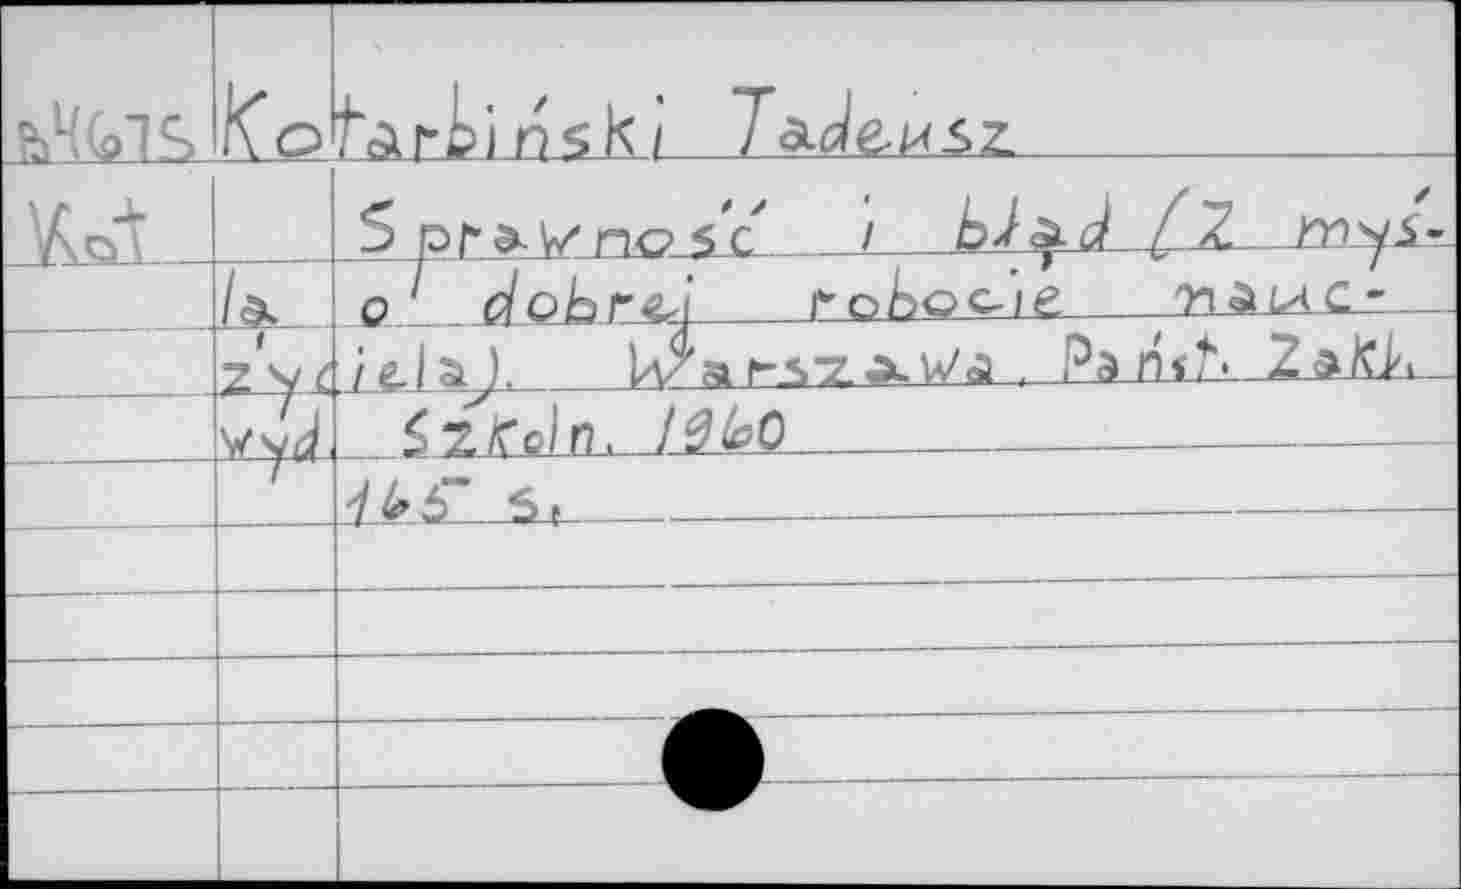 Kotarbiński Tadeusz
Kot Sprawność i błąd (Z myś-
lą o dobrej robocie nauc-
zyciela). Warszawa, Państ. Zakł.
wyd. Szkoln. 1960
165 s.